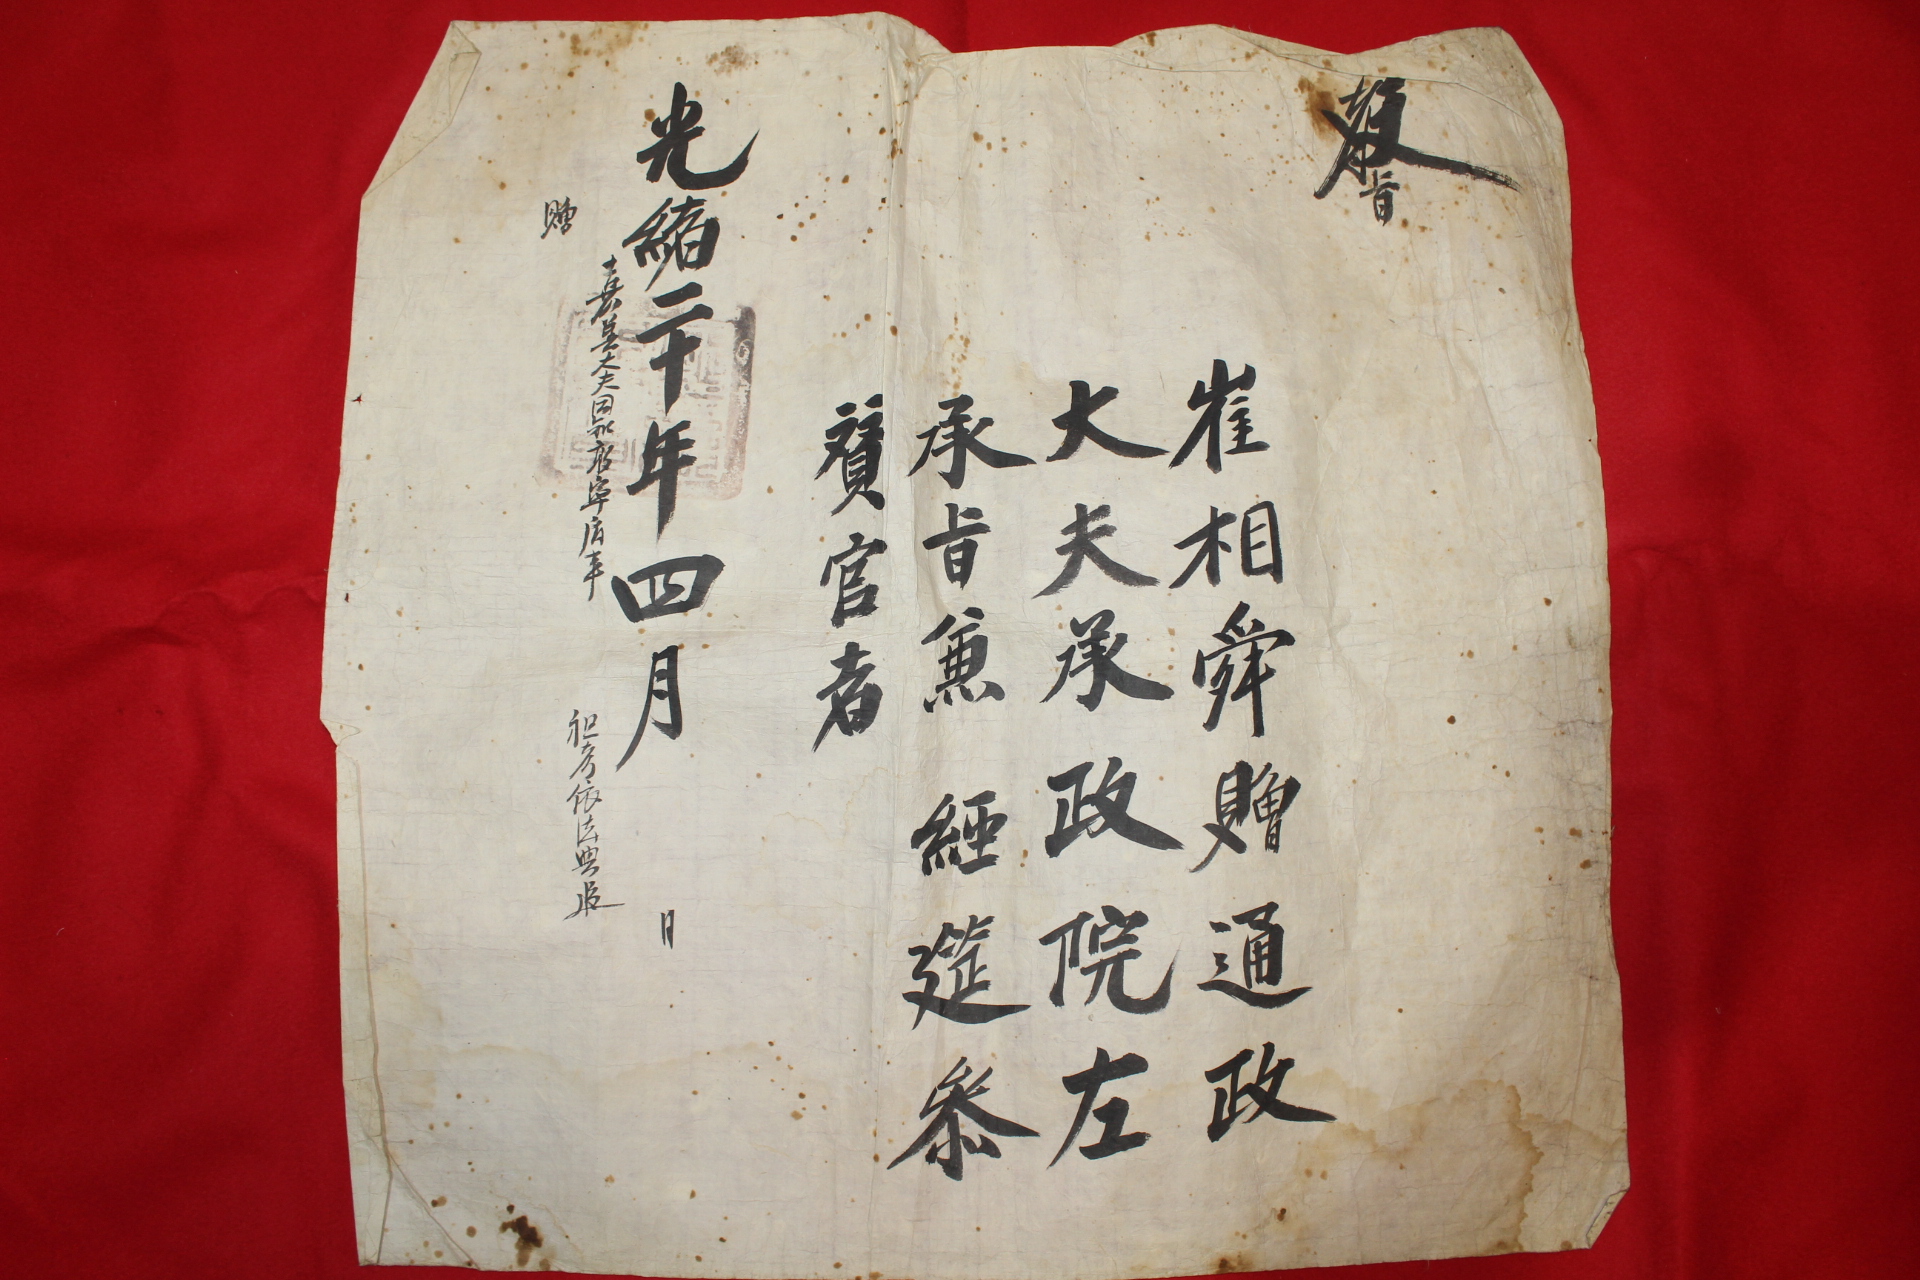 敎旨
崔相舜贈通政
大夫承政院左
承旨兼經筵參
贊官者
光緖二十年四月 日
贈嘉善大夫同知敦寧府事
祖考依法典追